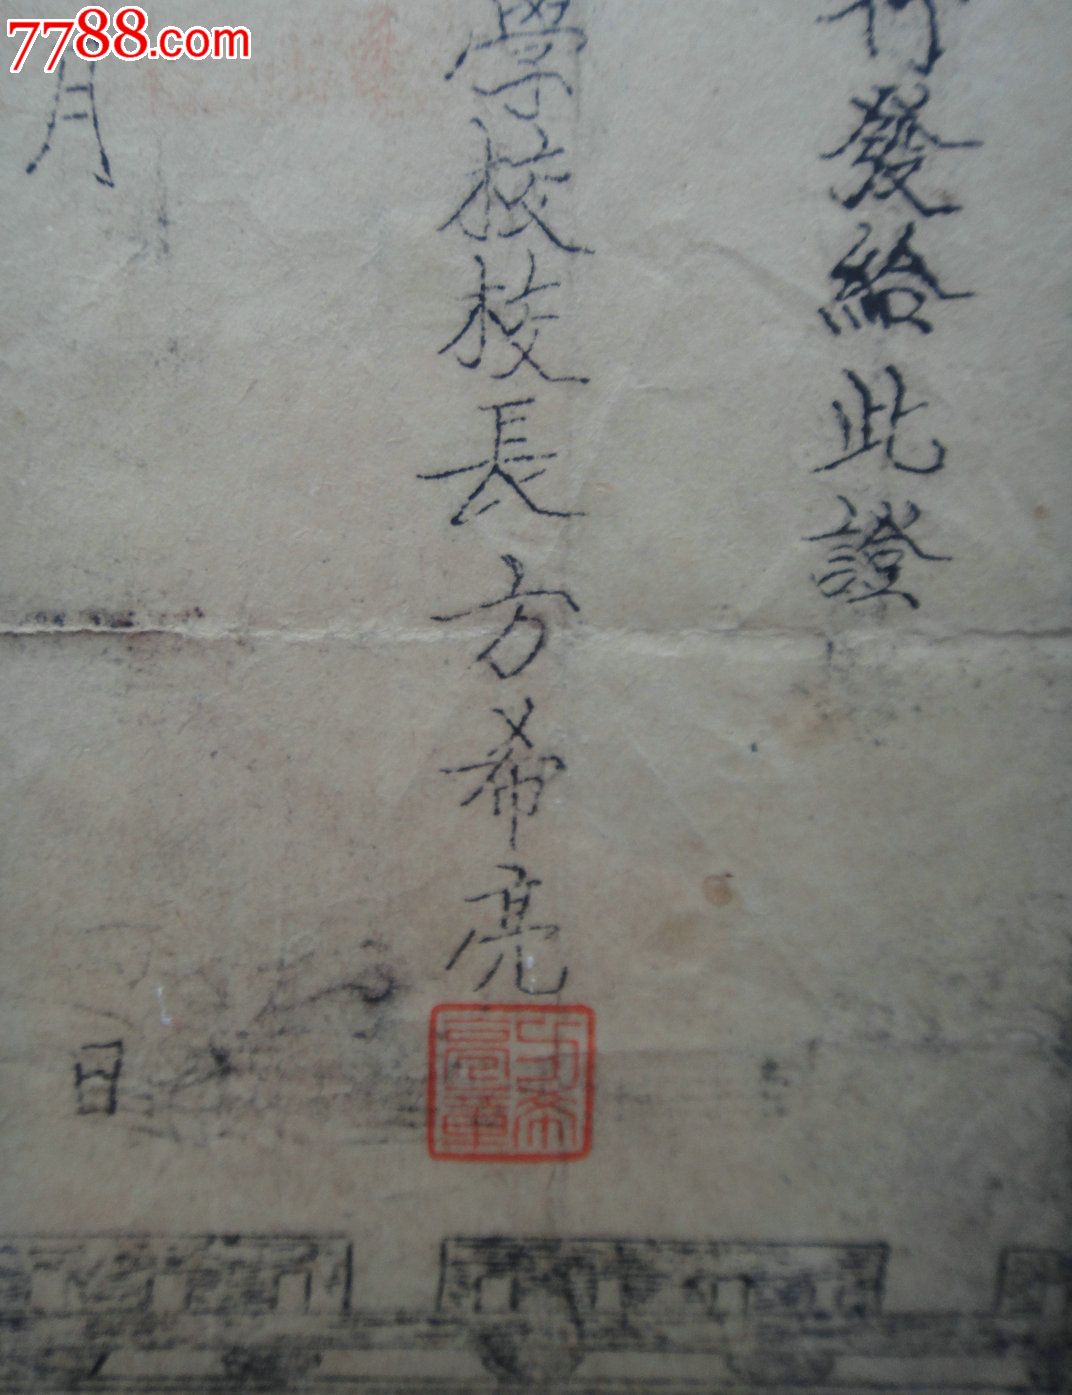 7788.com
行發給此證
學校校長方希亮
方希亮章
月
日